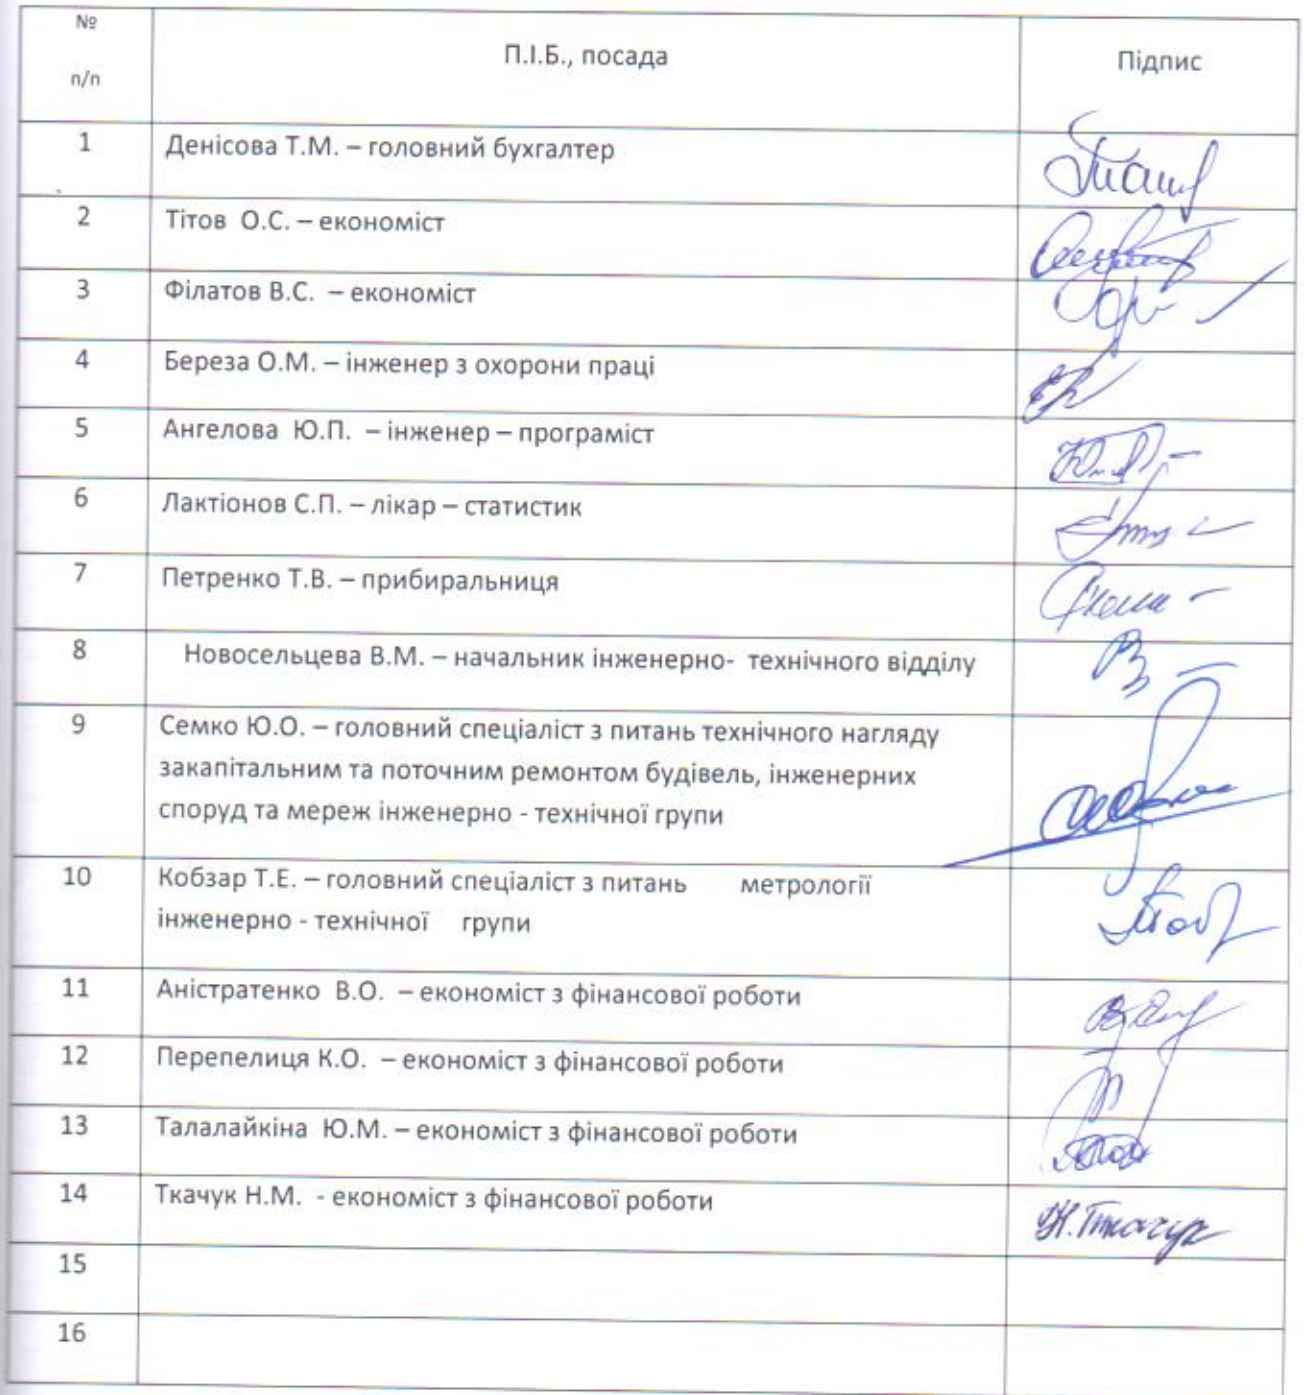 №
п/п
П.І.Б., посада
Підпис
1
Денісова Т.М. – головний бухгалтер
2
Тітов О.С. – економіст
3
Філатов В.С. – економіст
4
Береза О.М. – інженер з охорони праці
5
Ангелова Ю.П. – інженер – програміст
6
Лактіонов С.П. – лікар – статистик
7
Петренко Т.В. – прибиральниця
8
Новосельцева В.М. – начальник інженерно- технічного відділу
9
Семко Ю.О. – головний спеціаліст з питань технічного нагляду
закапітальним та поточним ремонтом будівель, інженерних
споруд та мереж інженерно - технічної групи
10
Кобзар Т.Е. – головний спеціаліст з питань метрології
інженерно - технічної групи
11
Аністратенко В.О. – економіст з фінансової роботи
12
Перепелиця К.О. – економіст з фінансової роботи
13
Талалайкіна Ю.М. – економіст з фінансової роботи
14
Ткачук Н.М. - економіст з фінансової роботи
Н.Ткачук
15
16